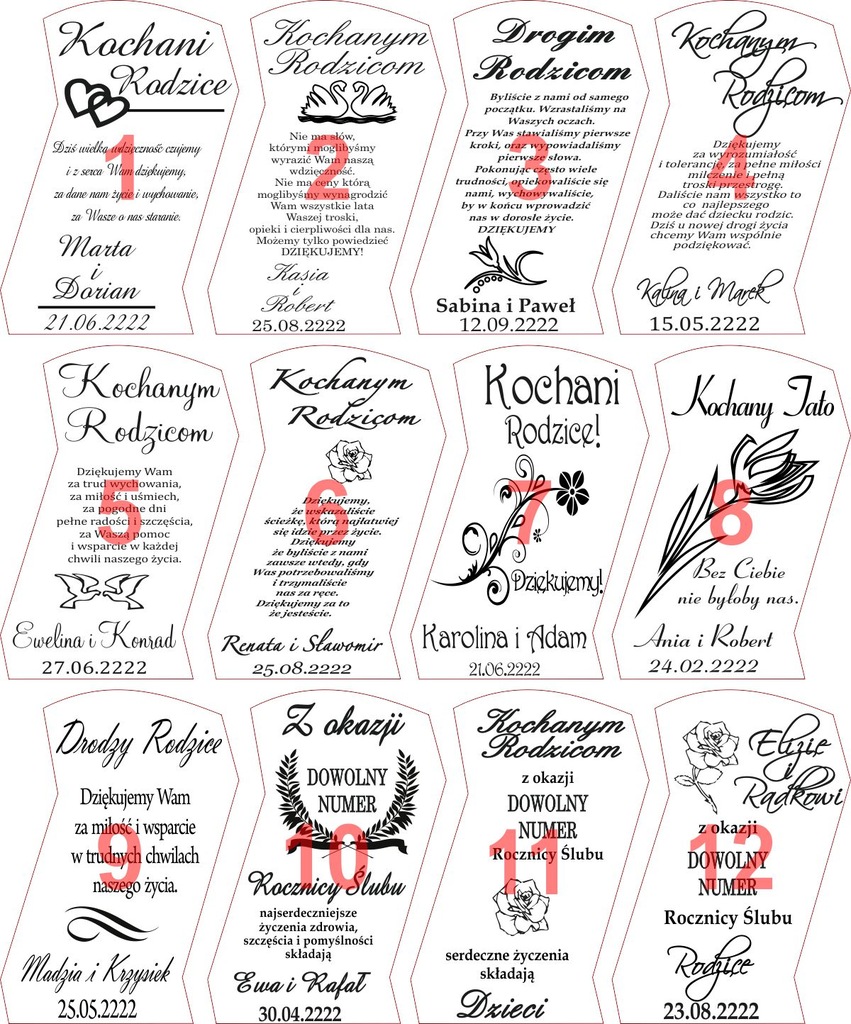 Kochani
Rodzice
Dziś wielka wdzięczność czujemy
i z serca Wam dziękujemy,
za dane nam życie i wychowanie,
za Wasze o nas staranie.
Marta
i
Dorian
21.06.2222
1
Kochanym
Rodzicom
Nie ma słów,
którymi moglibyśmy
wyrazić Wam naszą
wdzięczność.
Nie ma ceny którą
moglibyśmy wynagrodzić
Wam wszystkie lata
Waszej troski,
opieki i cierpliwości dla nas.
Możemy tylko powiedzieć
DZIĘKUJEMY!
Kasia
i
Robert
25.08.2222
2
Drogim
Rodzicom
Byliście z nami od samego
początku. Wzrastaliśmy na
Waszych oczach.
Przy Was stawialiśmy pierwsze
kroki, oraz wypowiadaliśmy
pierwsze słowa.
Pokonując często wiele
trudności, opiekowaliście się
nami, wychowywaliście,
by w końcu wprowadzić
nas w dorosłe życie.
DZIĘKUJEMY
Sabina i Paweł
12.09.2222
3
Kochanym
Rodzicom
Dziękujemy
za wyrozumiałość
i tolerancję, za pełne miłości
milczenie i pełną
troski przestrogę.
Daliście nam wszystko to
co najlepszego
może dać dziecku rodzic.
Dziś u nowej drogi życia
chcemy Wam wspólnie
podziękować.
Kalina i Marek
15.05.2222
4
Kochanym
Rodzicom
Dziękujemy Wam
za trud wychowania,
za miłość i uśmiech,
za pogodne dni
pełne radości i szczęścia,
za Waszą pomoc
i wsparcie w każdej
chwili naszego życia.
Ewelina i Konrad
27.06.2222
5
Kochanym
Rodzicom
Dziękujemy,
że wskazaliście
ścieżkę, którą najłatwiej
się idzie przez życie.
Dziękujemy
że byliście z nami
zawsze wtedy, gdy
Was potrzebowaliśmy
i trzymaliście
nas za ręce.
Dziękujemy za to
że jesteście.
Renata i Sławomir
25.08.2222
6
Kochani
Rodzice!
Dziękujemy!
Karolina i Adam
21.06.2222
7
Kochany Tato
Bez Ciebie
nie byłoby nas.
Ania i Robert
24.02.2222
8
Drodzy Rodzice
Dziękujemy Wam
za miłość i wsparcie
w trudnych chwilach
naszego życia.
Madzia i Krzysiek
25.05.2222
9
Z okazji
DOWOLNY
NUMER
Rocznicy Ślubu
najserdeczniejsze
życzenia zdrowia,
szczęścia i pomyślności
składają
Ewa i Rafał
30.04.2222
10
Kochanym
Rodzicom
z okazji
DOWOLNY
NUMER
Rocznicy Ślubu
serdeczne życzenia
składają
Dzieci
11
Elizie
i
Radkowi
z okazji
DOWOLNY
NUMER
Rocznicy Ślubu
Rodzice
23.08.2222
12